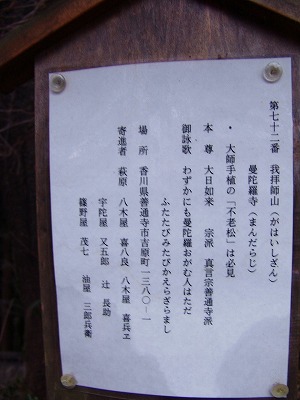 第七十二番 我拝師山(がはいしざん)
曼陀羅寺(まんだらじ)
・ 大師手植の「不老松」は必見
本 尊 大日如来 宗派 真言宗善通寺派
御詠歌 わずかにも曼陀羅おがむ人はただ
ふたたびみたびかえらざらまし
場 所 香川県善通寺市吉原町一三八〇―一
寄進者 萩原 八木屋 喜八良 八木屋 喜兵ヱ
宇陀屋 又五郎 辻 長助
篠野屋 茂七 油屋 三郎兵衛